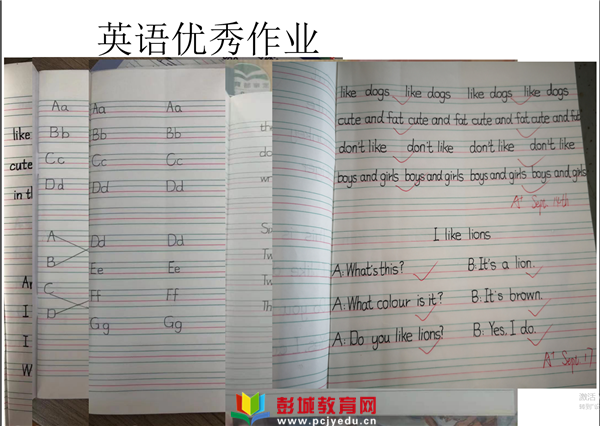 英语优秀作业
like
cute
in th
I
I
W
Aa
Bb
Cc
Dd
A
B
C
D
Aa Aa
Bb Bb
Cc Cc
Dd Dd
Dd Dd
Ee Ee
Ff Ff
Gg Gg
like dogs like dogs like dogs like dogs
cute and fat cute and fat cute and fat cute and fat
don't like don't like don't like don't like
boys and girls boys and girls boys and girls boys and girls
A+ Sept. 14th
I like lions
A: What's this? B: It's a lion.
A: What colour is it? B: It's brown.
A: Do you like lions? B: Yes, I do.
A+ Sept. 17
彭城教育网
www.pcjyedu.cn
激活